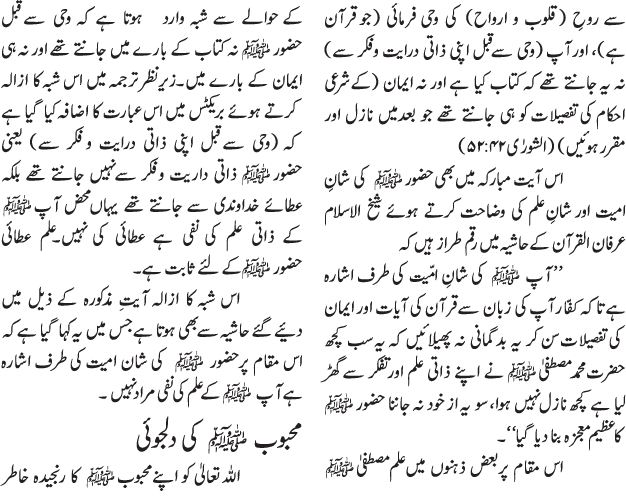 سے روحِ (قلوب و ارواح) کی وحی فرمائی (جو قرآن
ہے)، اور آپ (وحی سے قبل اپنی ذاتی درایت و فکر سے)
نہ یہ جانتے تھے کہ کتاب کیا ہے اور نہ ایمان (کے شرعی
احکام کی تفصیلات کو ہی جانتے تھے جو بعد میں نازل اور
مقرر ہوئیں) (الشورٰی ۵۲:۴۲)
اس آیت مبارکہ میں بھی حضور ﷺ کی شانِ
امیت اور شانِ علم کی وضاحت کرتے ہوئے شیخ الاسلام
عرفان القرآن کے حاشیہ میں رقم طراز ہیں کہ
’’آپ ﷺ کی شانِ امّیت کی طرف اشارہ
ہے تاکہ کفّار آپ کی زبان سے قرآن کی آیات اور ایمان
کی تفصیلات سن کر یہ بدگمانی نہ پھیلائیں کہ یہ سب کچھ
حضرت محمد مصطفیٰ ﷺ نے اپنے ذاتی علم اور تفکر سے گھڑ
لیا ہے کچھ نازل نہیں ہوا، سو یہ از خود نہ جاننا حضور ﷺ
کا عظیم معجزہ بنا دیا گیا‘‘۔
اس مقام پر بعض ذہنوں میں علم مصطفیٰ ﷺ
کے حوالے سے شبہ وارد ہوتا ہے کہ وحی سے قبل
حضور ﷺ نہ کتاب کے بارے میں جانتے تھے اور نہ ہی
ایمان کے بارے میں۔ زیرِ نظر ترجمہ میں اس شبہ کا ازالہ
کرتے ہوئے بریکٹس میں اس عبارت کا اضافہ کیا گیا ہے
کہ (وحی سے قبل اپنی ذاتی درایت و فکر سے) یعنی
حضور ﷺ ذاتی داریت و فکر سے نہیں جانتے تھے بلکہ
عطائے خداوندی سے جانتے تھے یہاں محض آپ ﷺ
کے ذاتی علم کی نفی ہے عطائی کی نہیں۔ علم عطائی
حضور ﷺ کے لئے ثابت ہے۔
اس شبہ کا ازالہ آیتِ مذکورہ کے ذیل میں
دیئے گئے حاشیہ سے بھی ہوتا ہے جس میں یہ کہا گیا ہے کہ
اس مقام پر حضور ﷺ کی شان امیت کی طرف اشارہ
ہے آپ ﷺ کے علم کی نفی مراد نہیں۔
محبوب ﷺ کی دلجوئی
اللہ تعالیٰ کو اپنے محبوب ﷺ کا رنجیدہ خاطر